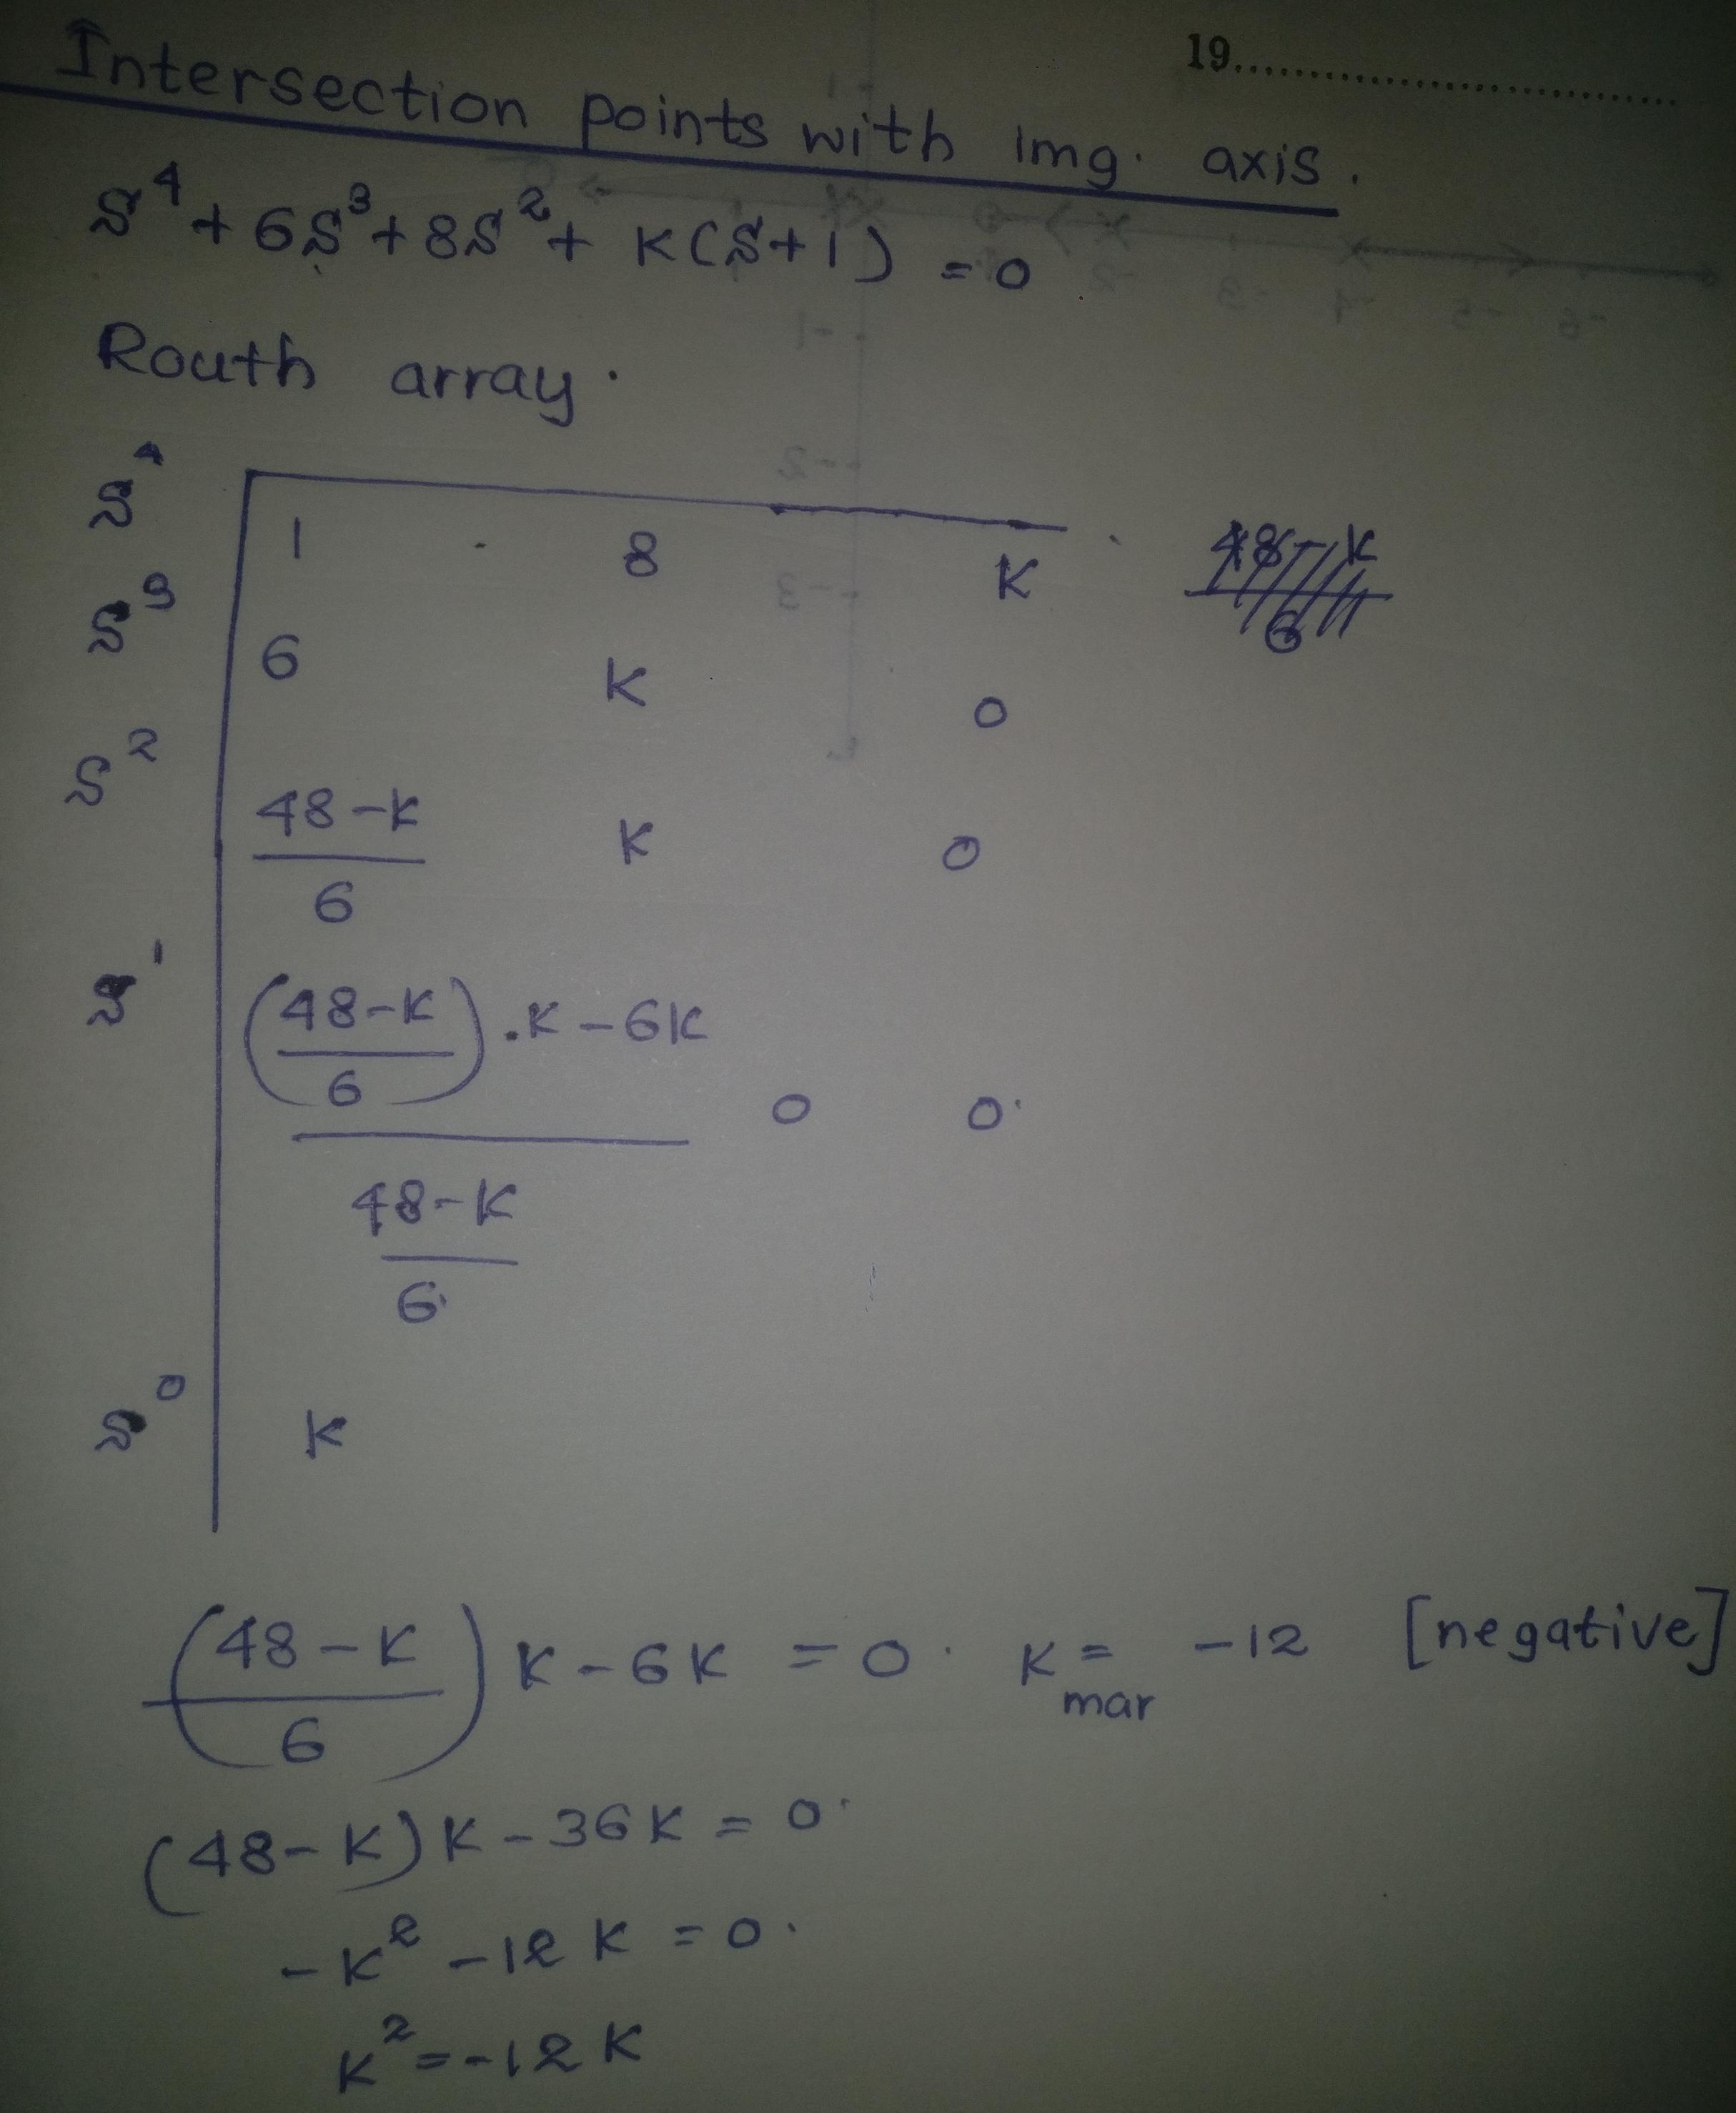 19..............................
Intersection points with Img. axis.
S⁴ + 6S³ + 8S² + K(S+1) = 0
Routh array.
S⁴ 1 8 K
S³ 6 K 0
S² (48-K)/6 K 0
S¹ (((48-K)/6).K - 6K)/((48-K)/6) 0 0
S⁰ K
((48-K)/6) K - 6K = 0. K mar = -12 [negative]
(48-K)K - 36K = 0.
-K² - 12K = 0.
K² = -12K